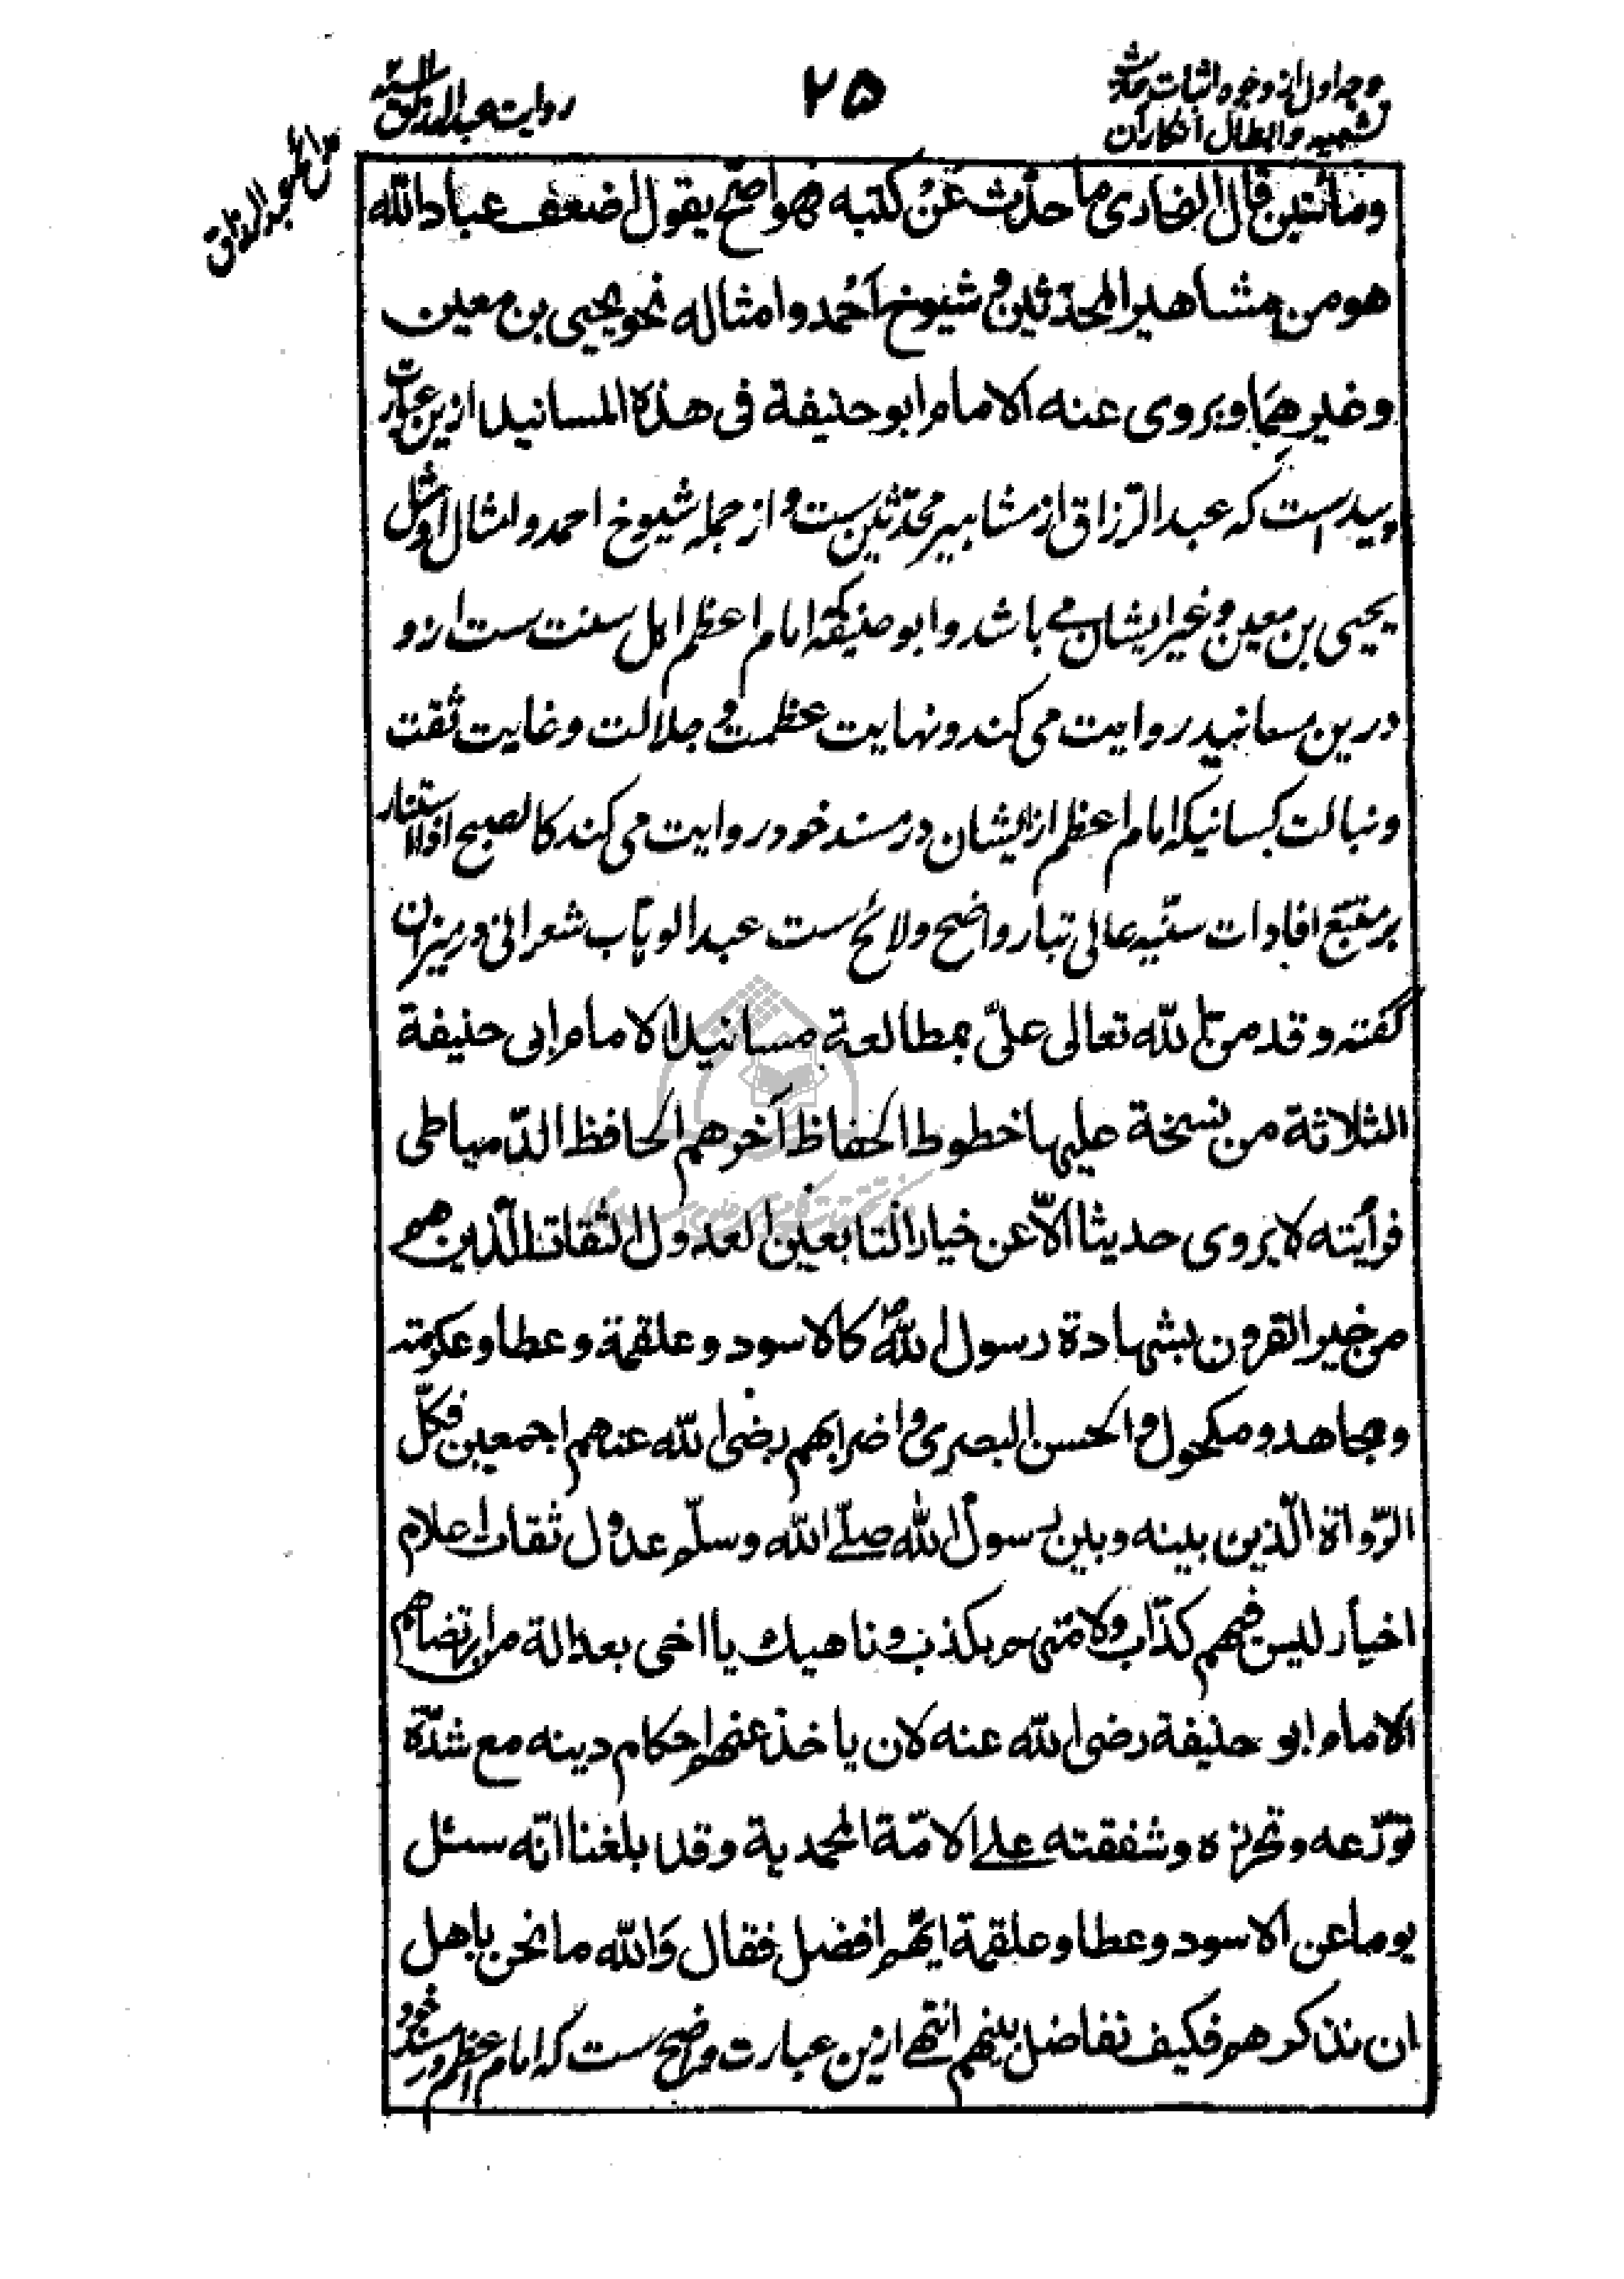 وجه اول از وجوه اثبات حدیث
تشبیه و ابطال انکار آن
۲۵
روایت عبدالرزاق
عبدالرزاق
ومائتین قال البخاری ما حدّث عن کتبه فهو اصحّ یقول اضعف عباد الله
هو من مشاهیر المحدّثین و شیوخ احمد و امثاله نحو یحیی بن معین
وغیرهما ویروی عنه الامام ابو حنیفة فی هذه المسانید ازین عبارت
پیداست که عبد الرّزاق از مشاهیر محدّثین ست و از جمله شیوخ احمد و امثال او مثل
یحیی بن معین و غیر ایشان می باشد و ابو حنیفه که امام اعظم اهل سنت ست ازو
درین مسانید روایت می کند و نهایت عظمت و جلالت و غایت ثقت
ونبالت کسانیکه امام اعظم ازیشان در مسند خود روایت می کند کالصبح اذا استنار
بر متتبّع افادات سنّیه عالی تبار واضح ولائح ست عبد الوهاب شعرانی در میزان
گفته وقد منّ الله تعالی علیّ بمطالعة مسانید الامام ابی حنیفة
الثلاثة من نسخة علیها خطوط الحفاظ آخرهم الحافظ الدّمیاطی
فرأیته لا یروی حدیثا الّا عن خیار التابعین العدول الثقات الّذین هم
من خیر القرون بشهادة رسول الله ص کالاسود وعلقمة وعطا وعکرمة
ومجاهد ومکحول والحسن البصری واضرابهم رضی الله عنهم اجمعین فکلّ
الرّواة الّذین بینه وبین رسول الله صلّے الله وسلّم عدول ثقات اعلام
اخیار لیس فیهم کذّاب ولا متهم بکذب وناهیك یا اخی بعدالة من ارتضاهم
الامام ابو حنیفة رضی الله عنه لان یاخذ عنهم احکام دینه مع شدّة
تورّعه وتحرّزه وشفقته علے الامّة المحمدیة وقد بلغنا انّه سئل
یوما عن الاسود وعطا وعلقمة ایّهم افضل فقال والله ما نحن باهل
ان نذکرهم فکیف نفاضل بینهم انتهے ازین عبارت واضح ست که امام اعظم در مسند خود